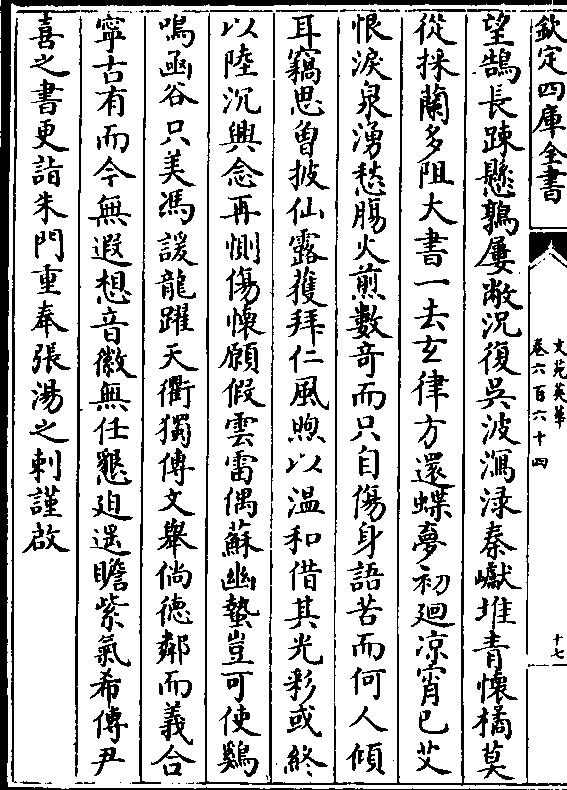 欽定四庫全書
文苑英華
卷六百六十四
十七
望鵠長疎懸鶉屢敝況復吳波瀉渌秦巘堆青懷橘莫
從採蘭多阻大書一去玄律方還蝶夢初廻凉宵已艾
恨淚泉湧愁腸火煎數奇而只自傷身語苦而何人傾
耳竊思曾披仙露獲拜仁風煦以温和借其光彩或終
以陸沉興念再惻傷懐願假雲雷偶蘇幽蟄豈可使鷄
鳴函谷只美馮諼龍躍天衢獨傳文舉倘德鄰而義合
寧古有而今無遐想音徽無任懇迫遥瞻紫氣希傳尹
喜之書更詣朱門重奉張湯之刺謹啟